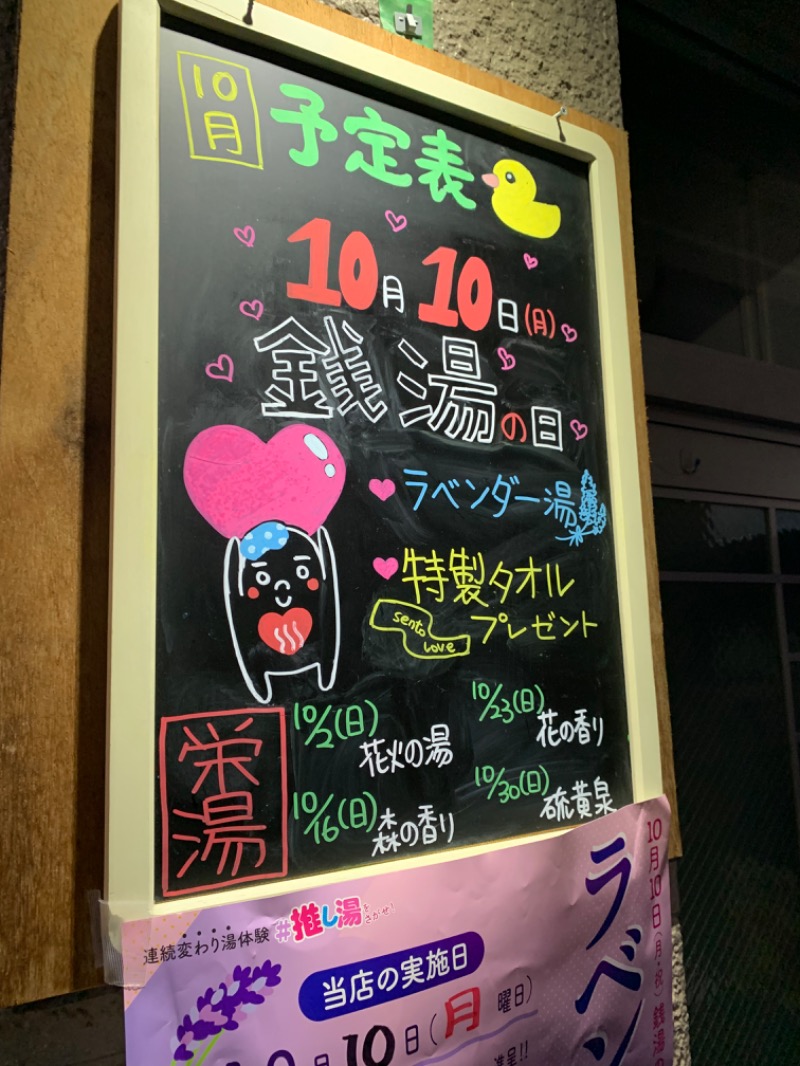 10月
予定表
10月10日(月)
銭湯の日
ラベンダー湯
特製タオル
プレゼント
sento
love
栄湯
10/2(日)
花火の湯
10/16(日)
森の香り
10/23(日)
花の香り
10/30(日)
硫黄泉
連続変わり湯体験
#推し湯をさがせ!
当店の実施日
10日(月曜日)
進呈!!
ラベン
10月10日(月・祝)銭湯の